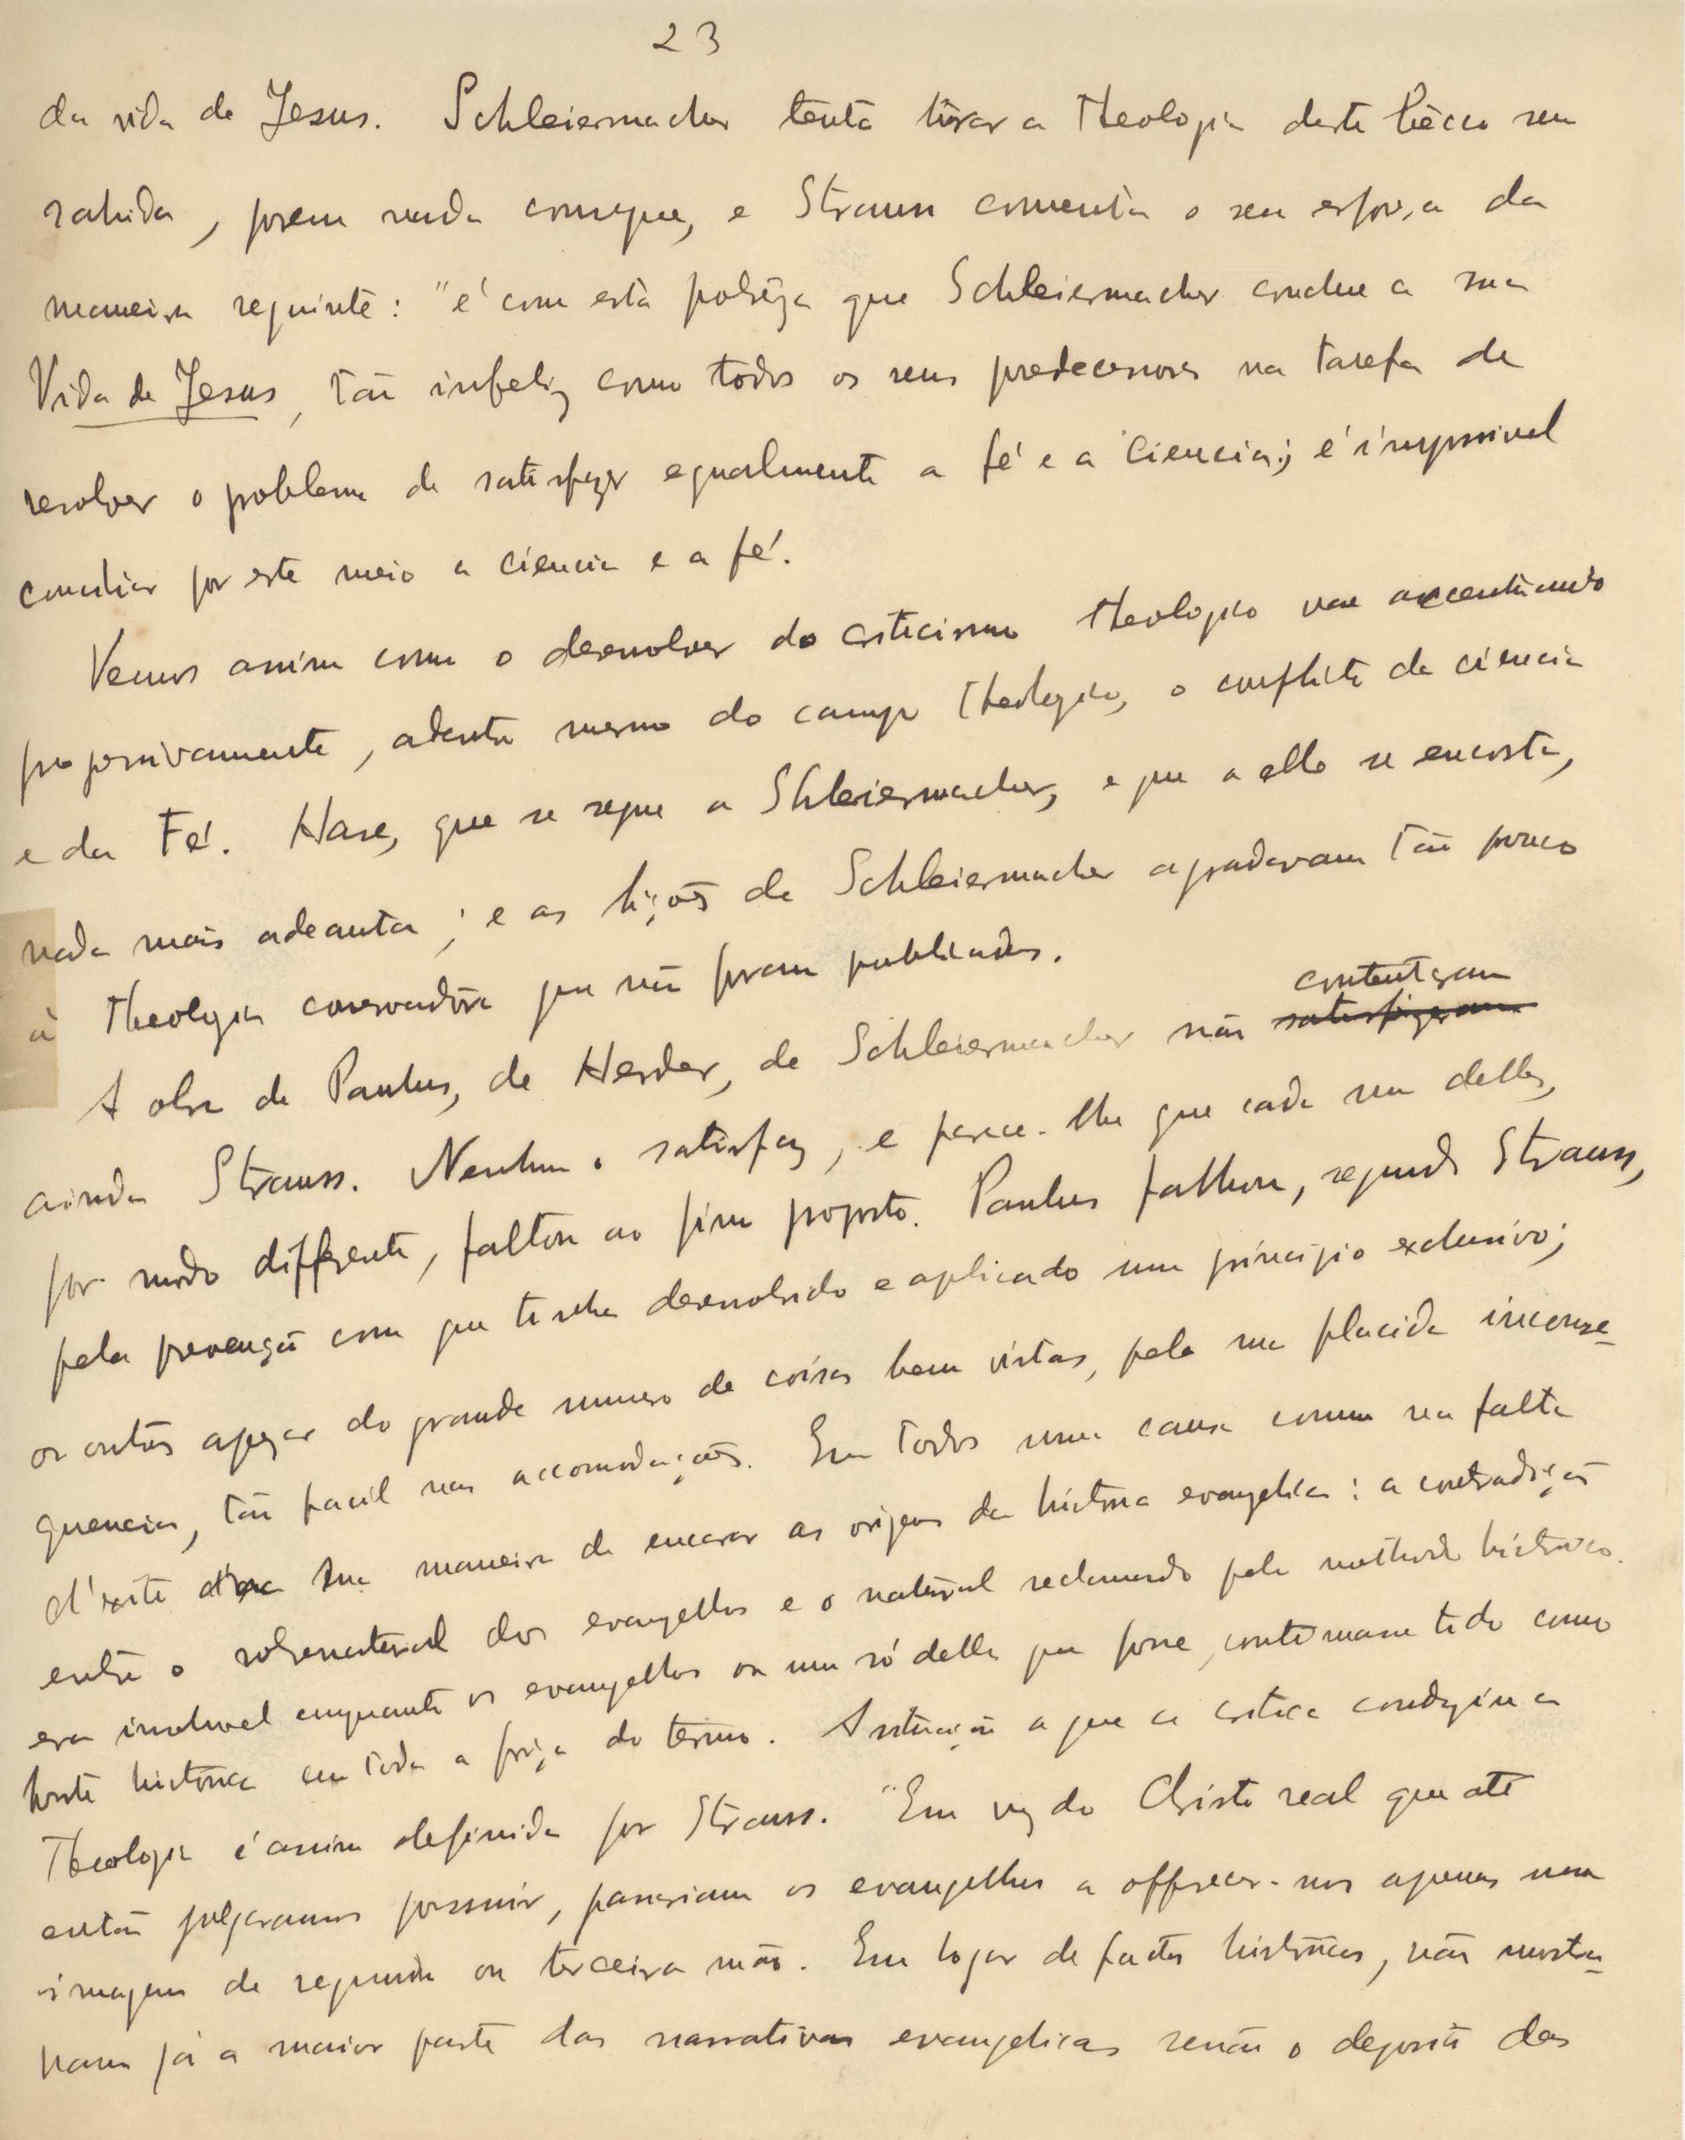 23
da vida de Jesus. Schleiermacher tenta tirar a Theologia deste bêcco sem
sahida, porem nada consegue, e Strauss comenta o seu esforço da
maneira seguinte: "é com esta pobrêza que Schleiermacher conclue a sua
Vida de Jesus, tão infeliz como todos os seus predecessores na tarefa de
resolver o problema de satisfazer egualmente a fé e a Ciencia; é impossivel
conciliar por este meio a ciencia e a fé.
Vemos assim como o desenvolver do criticismo theologico vae accentuando
progressivamente, adentro mesmo do campo theologico, o conflicto da ciencia
e da Fé. Hase, que se segue a Shleiermacher, e que a elle se encosta,
nada mais adeanta; e as lições de Schleiermacher agradavam tão pouco
à Theologia conservadora que não foram publicadas.
A obra de Paulus, de Herder, de Schleiermacher não satisfizeram contentaram
ainda Strauss. Nenhum o satisfaz, e parece-lhe que cada um delles,
por modo differente, faltou ao fim proposto. Paulus falhou, segundo Strauss,
pela prevenção com que tinha desenvolvido e aplicado um principio exclusivo;
os outros apezar do grande numero de coisas bem vistas, pela sua placida inconse-
quencia, tão facil nas accomodações. Em todos uma causa comum na falta
d'exito sua maneira de encarar as origens da história evangelica: a contradição
entre o sobrenatural dos evangelhos e o natural reclamado pelo methodo histórico
era insoluvel emquanto os evangelhos ou um só delles que fosse, continuasse tido como
fonte histórica em toda a força do termo. A situação a que a critica conduzira a
Theologia é assim definida por Strauss. "Em vez do Christo real que até
então julgaramos possuir, passariam os evangelhos a offrecer-nos apenas uma
imagem de segunda ou terceira mão. Em logar de factos históricos, não mostra-
vam já a maior parte das narrativas evangelicas senão o deposito das